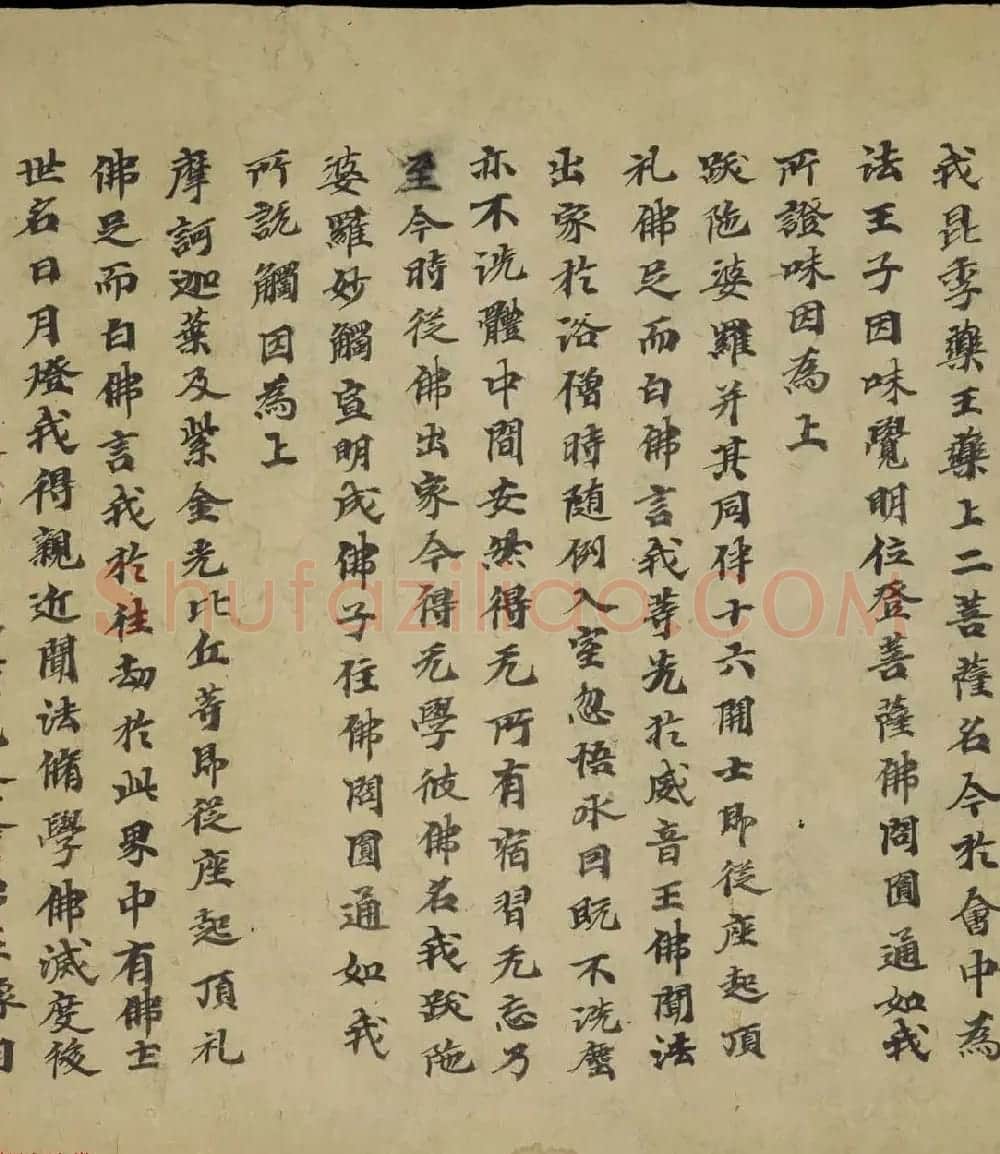 我昆季藥王藥上二菩薩名今於會中為
法王子因味覺明位登菩薩佛問圓通如我
所證味因為上
跋陁婆羅并其同伴十六開士即從座起頂
礼佛足而白佛言我等先於威音王佛聞法
出家於浴僧時随例入室忽悟水因既不洗塵
亦不洗體中間安然得无所有宿習无忘乃
至今時從佛出家今得无學彼佛名我跋陁
婆羅妙觸宣明成佛子住佛問圓通如我
所說觸因為上
摩訶迦葉及紫金光比丘等即從座起頂礼
佛足而白佛言我於往劫於此界中有佛出
世名日月燈我得親近聞法脩學佛滅度後
Shufaziliao.COM